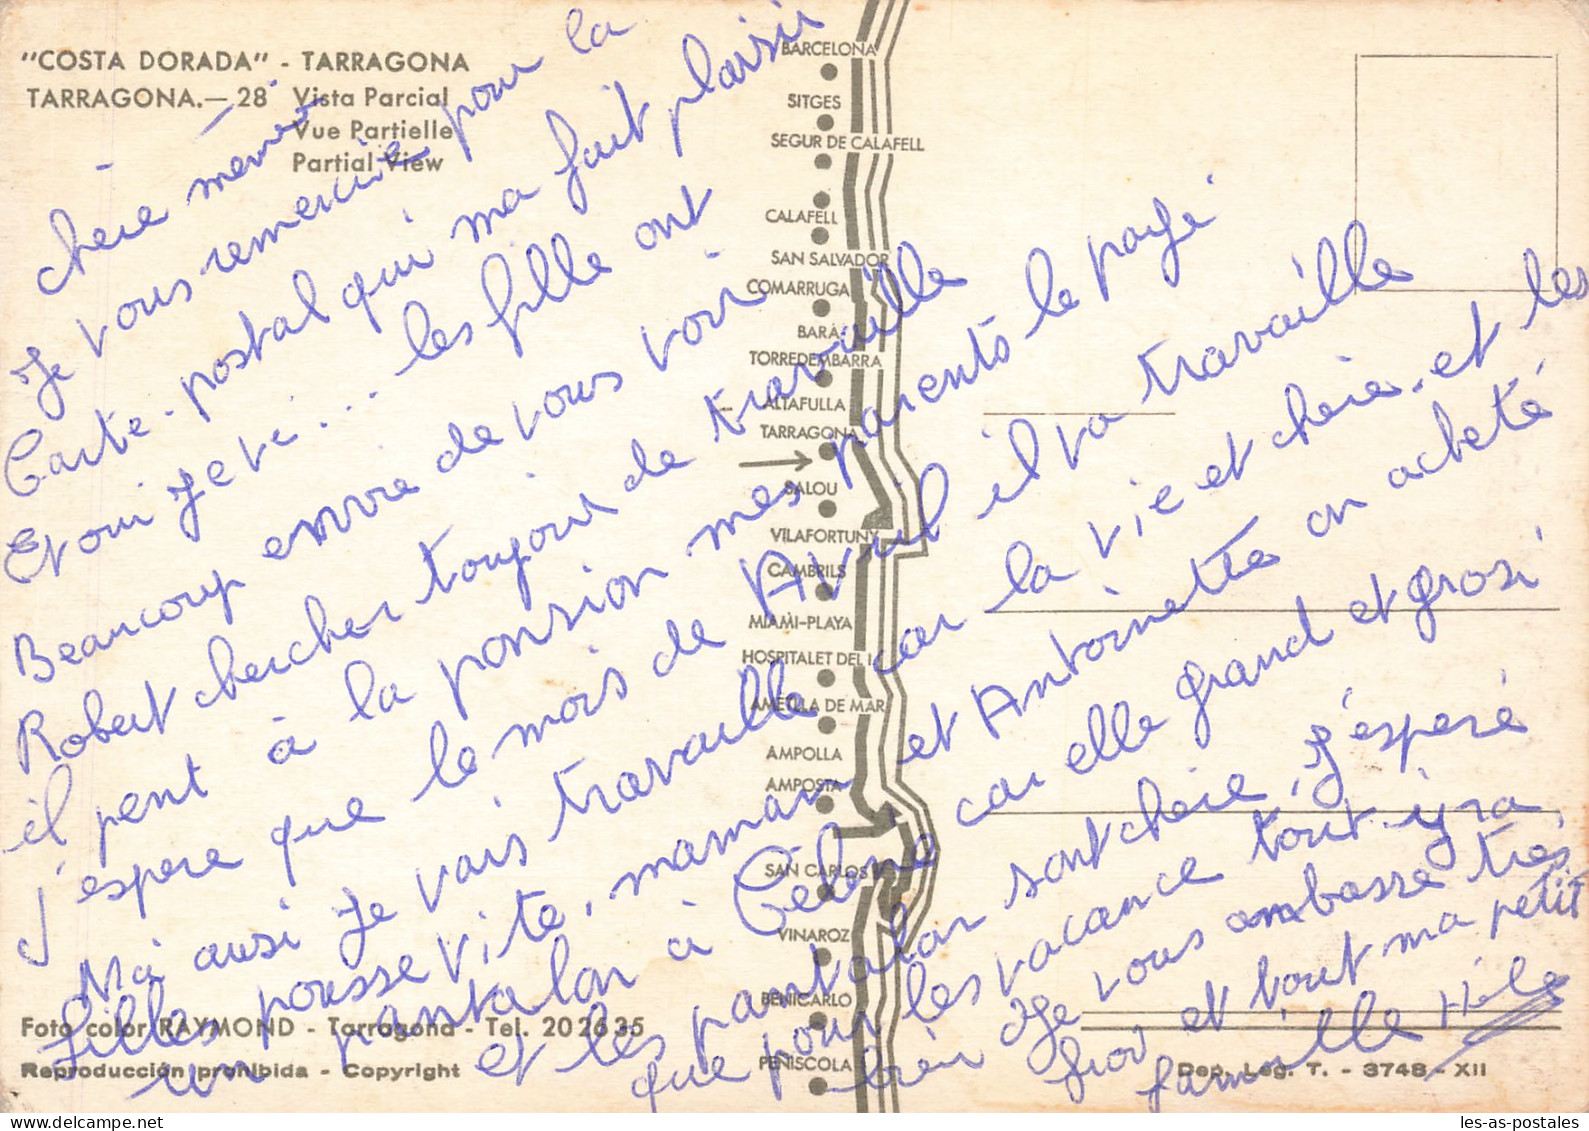 "COSTA DORADA" - TARRAGONA
TARRAGONA.— 28 Vista Parcial
Vue Partielle
Partial View
BARCELONA
SITGES
SEGUR DE CALAFELL
CALAFELL
SAN SALVADOR
COMARRUGA
BARÁ
TORREDEMBARRA
ALTAFULLA
TARRAGONA
SALOU
VILAFORTUNY
CAMBRILS
MIAMI-PLAYA
HOSPITALET DEL I.
AMETLLA DE MAR
AMPOLLA
AMPOSTA
SAN CARLOS
VINAROZ
BENICARLO
PEÑISCOLA
chère mémé
Je vous remercie pour la
Carte-postal qui ma fait plaisir
Et oui Je ve... les fille ont
Beaucoup envie de vous voir
Robert chercher toujour de travaille
il pent à la pension mes parents le paye
J'espere que le mois de Avril il va travaille
Ma ausi Je vais travaille car la vie et chère. et les
filles pousse vite, maman et Antoinette on acheté
un pantalon à Céline car elle grand et grosi
et les pantalon sont chère, J'esperé
que pour les vacance tout y ra
bien Je vous ambasse tres
for et tout ma petit
famille
Foto color RAYMOND - Tarragona - Tel. 20 26 35
Reproducción prohibida - Copyright
Dep. Leg. T. - 3748 - XII
les-as-postales